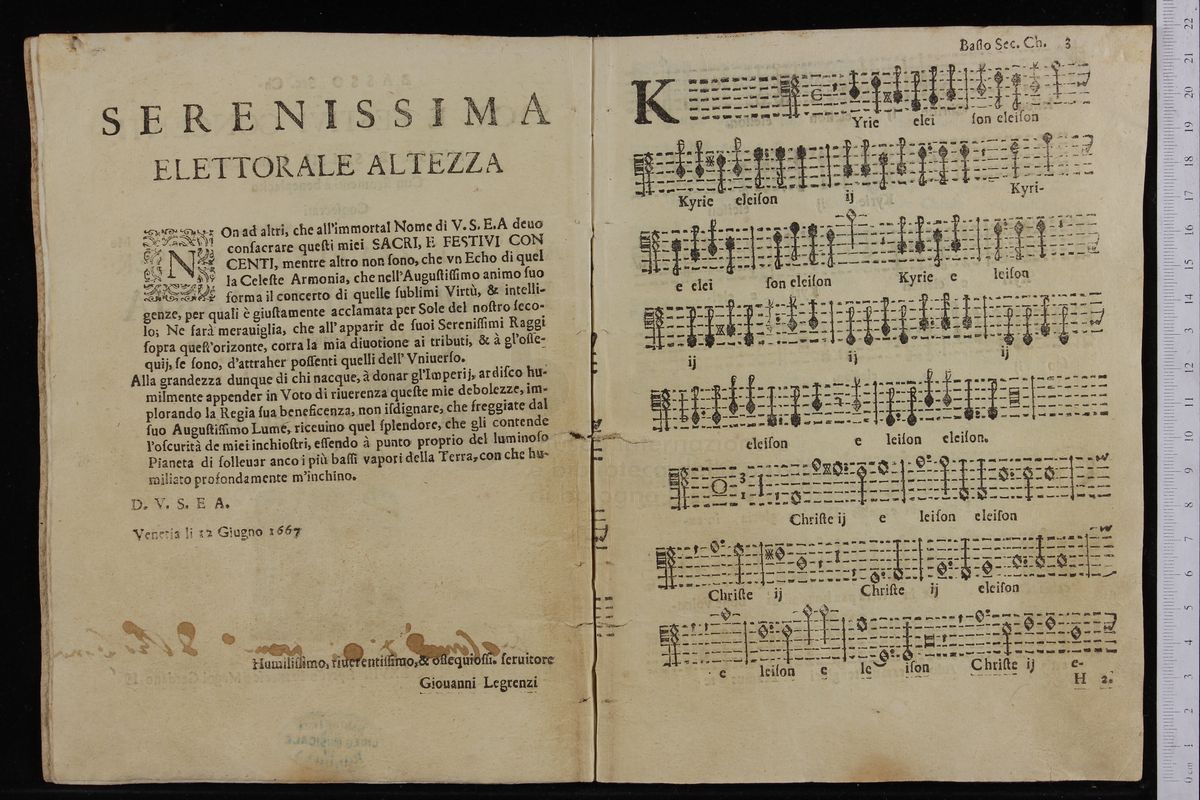 SERENISSIMA
ELETTORALE ALTEZZA
NOn ad altri, che all'immortal Nome di V. S. E.A deuo
conſacrare queſti miei SACRI, E FESTIVI CON
CENTI, mentre altro non ſono, che vn Echo di quel
la Celeſte Armonia, che nell'Auguſtiſſimo animo ſuo
forma il concerto di quelle ſublimi Virtù, & intelli-
genze, per quali è giuſtamente acclamata per Sole del noſtro ſeco-
lo; Ne ſarà merauiglia, che all'apparir de ſuoi Sereniſſimi Raggi
ſopra queſt'orizonte, corra la mia diuotione ai tributi, & à gl'oſſe-
quij, ſe ſono, d'attraher poſſenti quelli dell'Vniuerſo.
Alla grandezza dunque di chi nacque, à donar gl'Imperij, ardiſco hu-
milmente appender in Voto di riuerenza queſte mie debolezze, im-
plorando la Regia ſua beneficenza, non iſdignare, che freggiate dal
ſuo Auguſtiſſimo Lume, riceuino quel ſplendore, che gli contende
l'oſcurità de miei inchioſtri, eſſendo à punto proprio del luminoſo
Pianeta di ſolleuar anco i più baſſi vapori della Terra, con che hu-
miliato profondamente m'inchino.
D. V. S. E A.
Venetia li 12 Giugno 1667
Humiliſſimo, riuerentiſſimo, & oſſequioſſ. ſeruitore
Giouanni Legrenzi
Baſſo Sec. Ch. 3
KYrie elei ſon eleiſon
Kyrie eleiſon ij Kyri-
e elei ſon eleiſon Kyrie e leiſon
ij ij ij
eleiſon e leiſon eleiſon.
Chriſte ij e leiſon eleiſon
Chriſte ij Chriſte ij eleiſon
e leiſon e le iſon Chriſte ij e-
H 2.